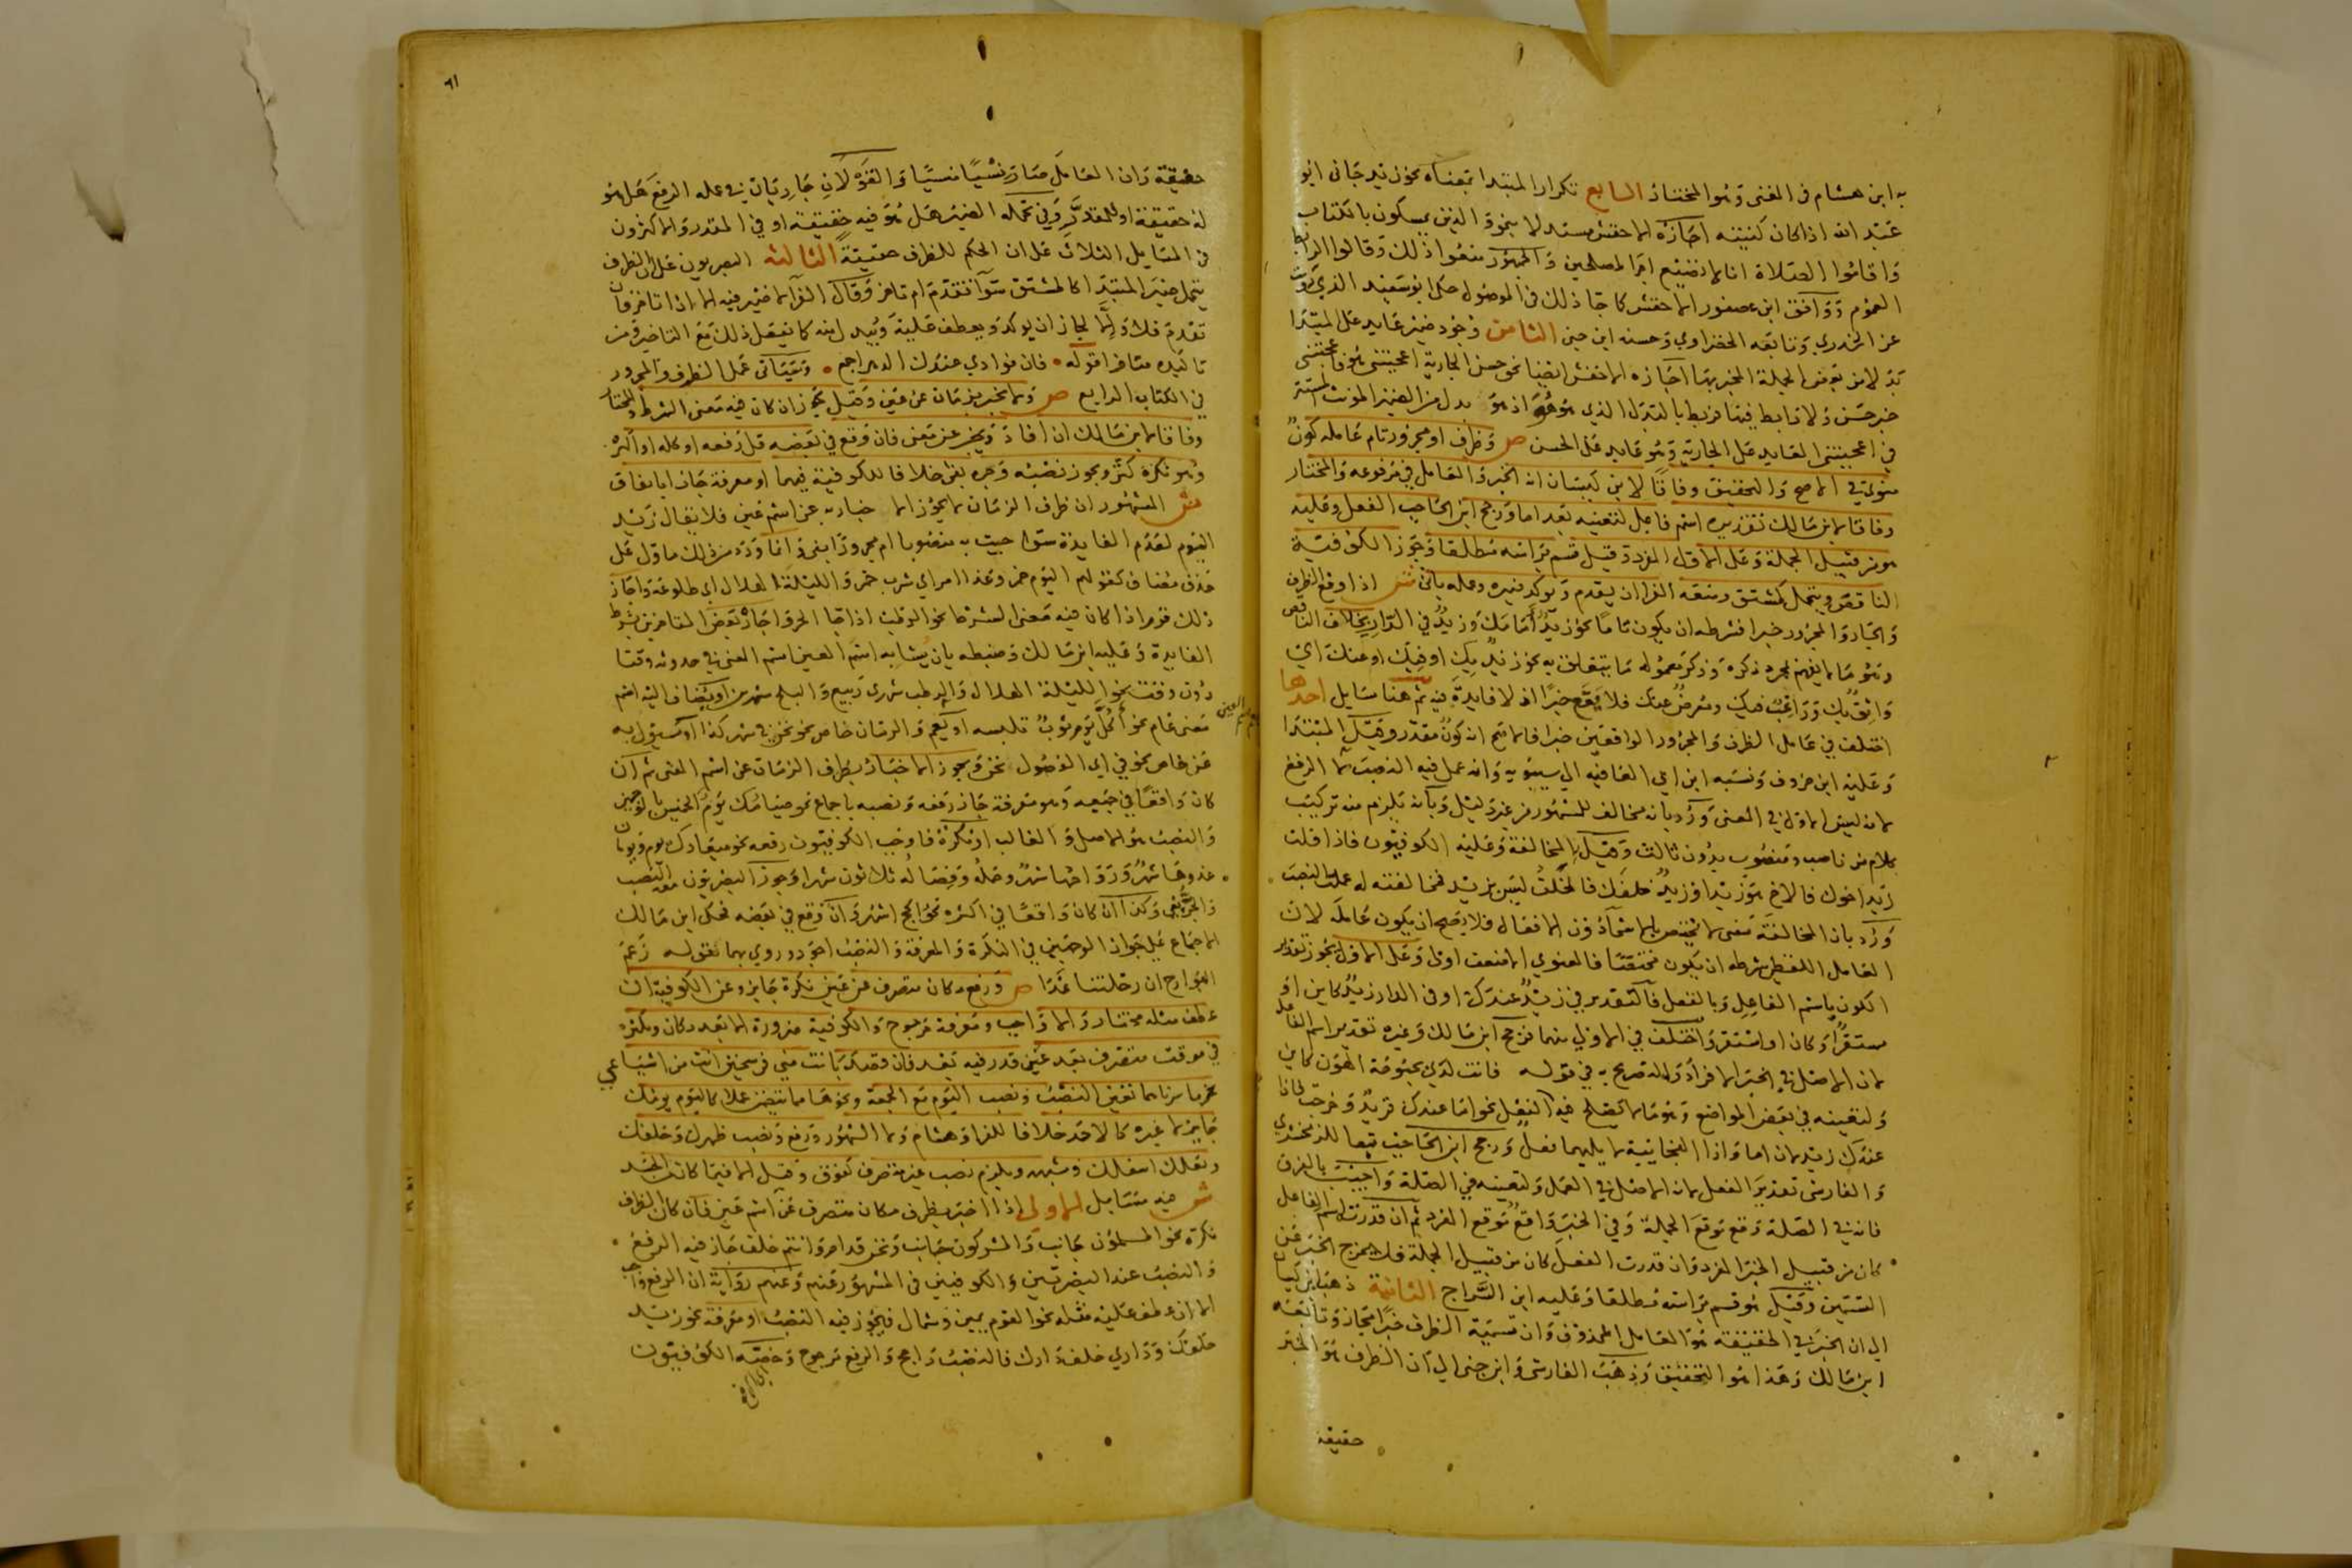 به ابن هشام فى المغنى وهو المختار السابع تكرار المبتدا بمعناه نحو زيد جانى ابو
عبد الله اذا كان كنيته اجازه الاخفش مستدلا بنحو والذين يمسكون بالكتاب
واقاموا الصلاة انا لا نضيع اجر المصلحين والجمهور منعوا ذلك وقالوا الرابط
العموم ووافق ابن عصفور الاخفش كاجا ذلك فى الموصول حكى ابو سعيد الذى رويت
عن الخدري وتابعه الخضراوي وحسنه ابن جنى الثامن وجود ضمير عايد على المبتدا
بدلا من بعض الجملة المخبر بها اجازه الاخفش ايضا نحو حسن الجارية اعجبتنى هو فاعجبتنى
خبر حسن ولا رابط فيها فربط بالبدل الذي هو هو اذ هو بدل من الضمير المونث المستتر
في اعجبتنى العايد على الجارية وهو عايد على الحسن ص وظرف او مجرور تام عامله كون
منوى فى الاصح والتحقيق وفاقا لابن كيسان انه الخبر والعامل في مرفوعه والمختار
وفاقا لابن مالك تقديره اسم فاعل لتعينه بعد اما ورجح ابن الحاجب الفعل وعليه
هو من قبيل الجملة وعلى الاول المفرد وقيل قسم براسه مطلقا وجوز الكوفية
الناقص ويتحمل كمشتق ومنعه الفرا ان يقدم ويوكد ضميره وعمله ياتى ش اذا وقع الظرف
والجار والمجرور خبرا فشرطه ان يكون تاما نحو زيد أمامك وزيد في الدار بخلاف الناقص
وهو ما لا يفهم بمجرد ذكره وذكر معموله ما يتعلق به نحو زيد بك او فيك او عنك اي
واثق بك وراغب فيك ومعرض عنك فلا يقع خبرا اذ لا فايدة فيه ثم هنا مسايل احدها
اختلف في عامل الظرف والمجرور الواقعين خبرا فالاصح انه كون مقدر وقيل المبتدا
وعليه ابن خروف ونسبه ابن ابي العافيه الى سيبويه وانه عمل فيه النصب لا الرفع
لانه ليس الاول في المعنى ورد بانه مخالف للمشهور من غير دليل وبانه يلزم منه تركيب
كلام من ناصب ومنصوب بدون ثالث وقيل بالمخالفة وعليه الكوفيون فاذا قلت
زيد اخوك فالاخ هو زيد او زيد خلفك فالخلف ليس بزيد فمخالفته له عملت النصب
ورد بان المخالفة معنى لا يختص بالاسماء دون الافعال فلا يصح ان يكون عامله لان
العامل اللفظى شرطه ان يكون مختصا فالمعنوي الاضعف اولى وعلى الاول يجوز تقدير
الكون باسم الفاعل وبالفعل فالتقدير في زيد عندك او فى الدار زيد كاين او
مستقر او كان او استقر واختلف في الاولى منهما فرجح ابن مالك وغيره تقدير اسم الفاعل
لان الاصل في الخبر الافراد وللتصريح به في قوله فانت لدى بحبوحة الهون كاين
ولتعينه في بعض المواضع وهو ما لا يصلح فيه الفعل نحو اما عندك فزيد وخرجت فاذا
عندك زيد لان اما واذا الفجائية لا يليهما فعل ورجح ابن الحاجب تبعا للزمخشري
والفارسى تقدير الفعل لان الاصل في العمل ولتعينه في الصلة واجيب بالفرق
فانه في الصلة وقع توقع الجملة وفي الخبر واقع توقع المفرد ثم ان قدرت اسم الفاعل
كان من قبيل الخبر المفرد وان قدرت الفعل كان من قبيل الجملة فلا يخرج الخبر عن
القسمين وقيل هو قسم براسه مطلقا وعليه ابن السراج الثانية ذهب ابن كيسان
الى ان الخبر في الحقيقة هو العامل المحذوف وان تسمية الظرف خبرا مجاز وتابعه
ابن مالك وهذا هو التحقيق وذهب الفارسى وابن جنى الى ان الظرف هو الخبر
حقيقة
٦١
حقيقة وان العامل صار نسيا منسيا والقولان جاريان فى عمله الرفع هل هو
له حقيقة او للمقدر وفي تحمله الضمير هل هو فيه حقيقة او في المقدر والاكثرون
فى المسايل الثلاث على ان الحكم للظرف حقيقة الثالثه البصريون على ان الظرف
يتحمل ضمير المبتدا كالمشتق سوآ تقدم ام تاخر وقال الفرا لا ضمير فيه الا اذا تاخر فان
تقدم فلا والا لجاز ان يوكد ويعطف عليه ويبدل منه كما يفعل ذلك مع التاخير ومن
تاكيده متاخرا قوله فان فوادي عندك الدهر اجمع وسياتى عمل الظرف والمجرور
في الكتاب الرابع ص ولا يخبر بزمان عن عين وقيل يجوز ان كان فيه معنى الشرط والمختار
وفاقا لابن مالك ان افاد ويخبر عن معنى فان وقع في بعضه قل رفعه او كله او اكثره
وهو نكرة كثر ويجوز نصبه وجره بفى خلافا للكوفية فيهما او معرفة جاز اباتفاق
ش المشهور ان ظرف الزمان لا يجوز الاخبار به عن اسم عين فلا يقال زيد
اليوم لعدم الفايدة سوا جيت به منصوبا ام مجرورا بفى وما ورد من ذلك ماول على
حذف مضاف كقولهم اليوم خمر وغدا امر اي شرب خمر والليلة الهلال اي طلوعه واجاز
ذلك قوم اذا كان فيه معنى الشرط نحو الرطب اذا جا الحر واجاز بعض المتاخرين بشرط
الفايدة وعليه ابن مالك وضبطه بان يشابه اسم العين اسم المعنى في حدوثه وقتا
دون وقت نحو الليلة الهلال والرطب شهرى ربيع والبلح شهرين او يضاف اليه اسم
معنى عام نحو أكل يوم ثوب تلبسه او يعم والزمان خاص نحو نحن في شهر كذا او مسئول به
عن خاص نحو في اى الفصول نحن ويجوز الاخبار بظرف الزمان عن اسم المعنى ثم ان
كان واقعا في جميعه وهو معرفة جاز رفعه ونصبه باجماع نحو صيامك يوم الخميس بالوجهين
والنصب هو الاصل والغالب او نكرة فاوجب الكوفيون رفعه نحو ميعادك يوم ويومان
غدوها شهر ورواحها شهر وحمله وفصاله ثلاثون شهرا وجوز البصريون معه النصب
والجر بفى وكذا ان كان واقعا في اكثره نحو الحج اشهر وان وقع في بعضه فحكى ابن مالك
الاجماع على جواز الوجهين في النكرة والمعرفة والنصب اجود وروي بهما قوله زعم
البوارح ان رحلتنا غدا ص ورفع مكان متصرف عن عين نكرة جايز وعن الكوفية ان
عطف مثله مختار والا واجب ومعرفة مرجوح والكوفية ضرورة الا بعد مكان ويكثر
في موقت متصرف بعد عين قدر فيه بعد فان قصد بانت مني فرسخين انت من اشياعي
نحو ما سرنا هما تعين النصب ونصب اليوم مع الجمعة ونحوها مما يتضمن عملا كاليوم يومك
جايز لا غيره كالاحد خلافا للفرا وهشام وما اشهر ورفع ونصب ظهرك وخلفك
ونعلك اسفلك وشبهه ويلزم نصب غير متصرف كفوق وقيل الا فيما كان الجسد
ش فيه مسايل الاولى اذا اخبر بظرف مكان متصرف عن اسم عين فان كان الظرف
نكرة نحو المسلمون جانب والمشركون جانب ونحن قدام وانتم خلف جاز فيه الرفع
والنصب عند البصريين والكوفيين فى المشهور عنهم وعنهم رواية ان الرفع واجب
الا ان عطف عليه مثله نحو القوم يمين وشمال فيجوز فيه النصب او معرفة نحو زيد
خلفك وداري خلف دارك فالنصب راجح والرفع مرجوح وخصه الكوفيون